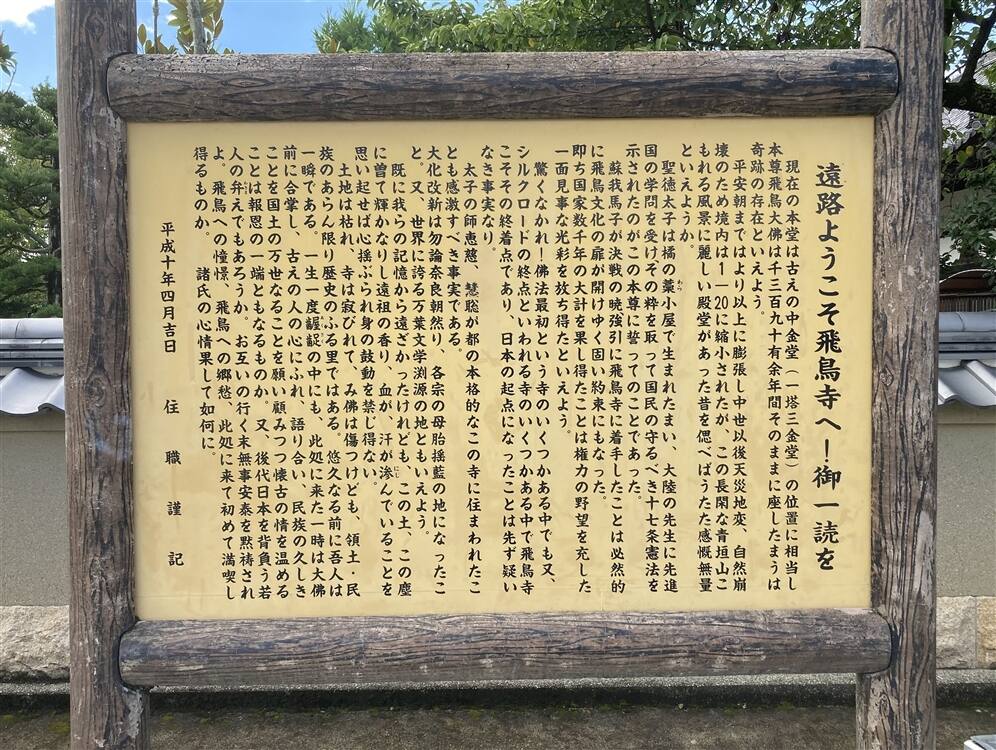 遠路ようこそ飛鳥寺へ！御一読を
現在の本堂は古えの中金堂（一塔三金堂）の位置に相当し
本尊飛鳥大佛は千三百九十有余年間そのままに座したまうは
奇跡の存在といえよう。
平安朝まではより以上に膨張し中世以後天災地変、自然崩
壊のため境内は1―20に縮小されたが、この長閑な青垣山こ
もれる風景に麗しい殿堂があった昔を偲べばうたた感慨無量
といえようか。
聖徳太子は橘の藁小屋で生まれたまい、大陸の先生に先進
国の学問を受けその粋を取って国民の守るべき十七条憲法を
示されたのがこの本尊に誓ってのことであった。
蘇我馬子が決戦の暁強引に飛鳥寺に着手したことは必然的
に飛鳥文化の扉が開けゆく固い約束にもなった。
即ち国家数千年の大計を果し得たことは権力の野望を充した
一面見事な光彩を放ち得たといえよう。
驚くなかれ！佛法最初という寺のいくつかある中でも又、
シルクロードの終点といわれる寺のいくつかある中で飛鳥寺
こそその終着点であり、日本の起点になったことは先ず疑い
なき事実なり。
太子の師恵慈、慧聡が都の本格的なこの寺に住まわれたこ
とも感激すべき事実である。
大化改新は勿論奈良朝然り、各宗の母胎揺藍の地になったこ
と。又、世界に誇る万葉文学渕源の地ともいえよう。
既に我らの記憶から遠ざかったけれども、この土、この塵
に曽て輝かなりし遠祖の香り、血が、汗が滲んでいることを
思い起せば心揺ぶられ身の鼓動を禁じ得ない。
土地は枯れ、寺は寂びれて、み佛は傷つけども、領土・民
族のあらん限り歴史のふる里ではある。悠久なる前に吾人は
一瞬である。一生一度齷齪の中にも、此処に来た一時は大佛
前に合掌し、古えの人の心にふれ、語り合い、民族の久しき
ことを国土の万世なることを願い顧みつつ懐古の情を温める
ことは報恩の一端ともなるものか。又、後代日本を背負う若
人の弁えでもあろうか。お互いの行く末無事安泰を黙祷され
よ。飛鳥への憧憬、飛鳥への郷愁、此処に来て初めて満喫し
得るものか。　諸氏の心情果して如何に。
平成十年四月吉日　住職謹記